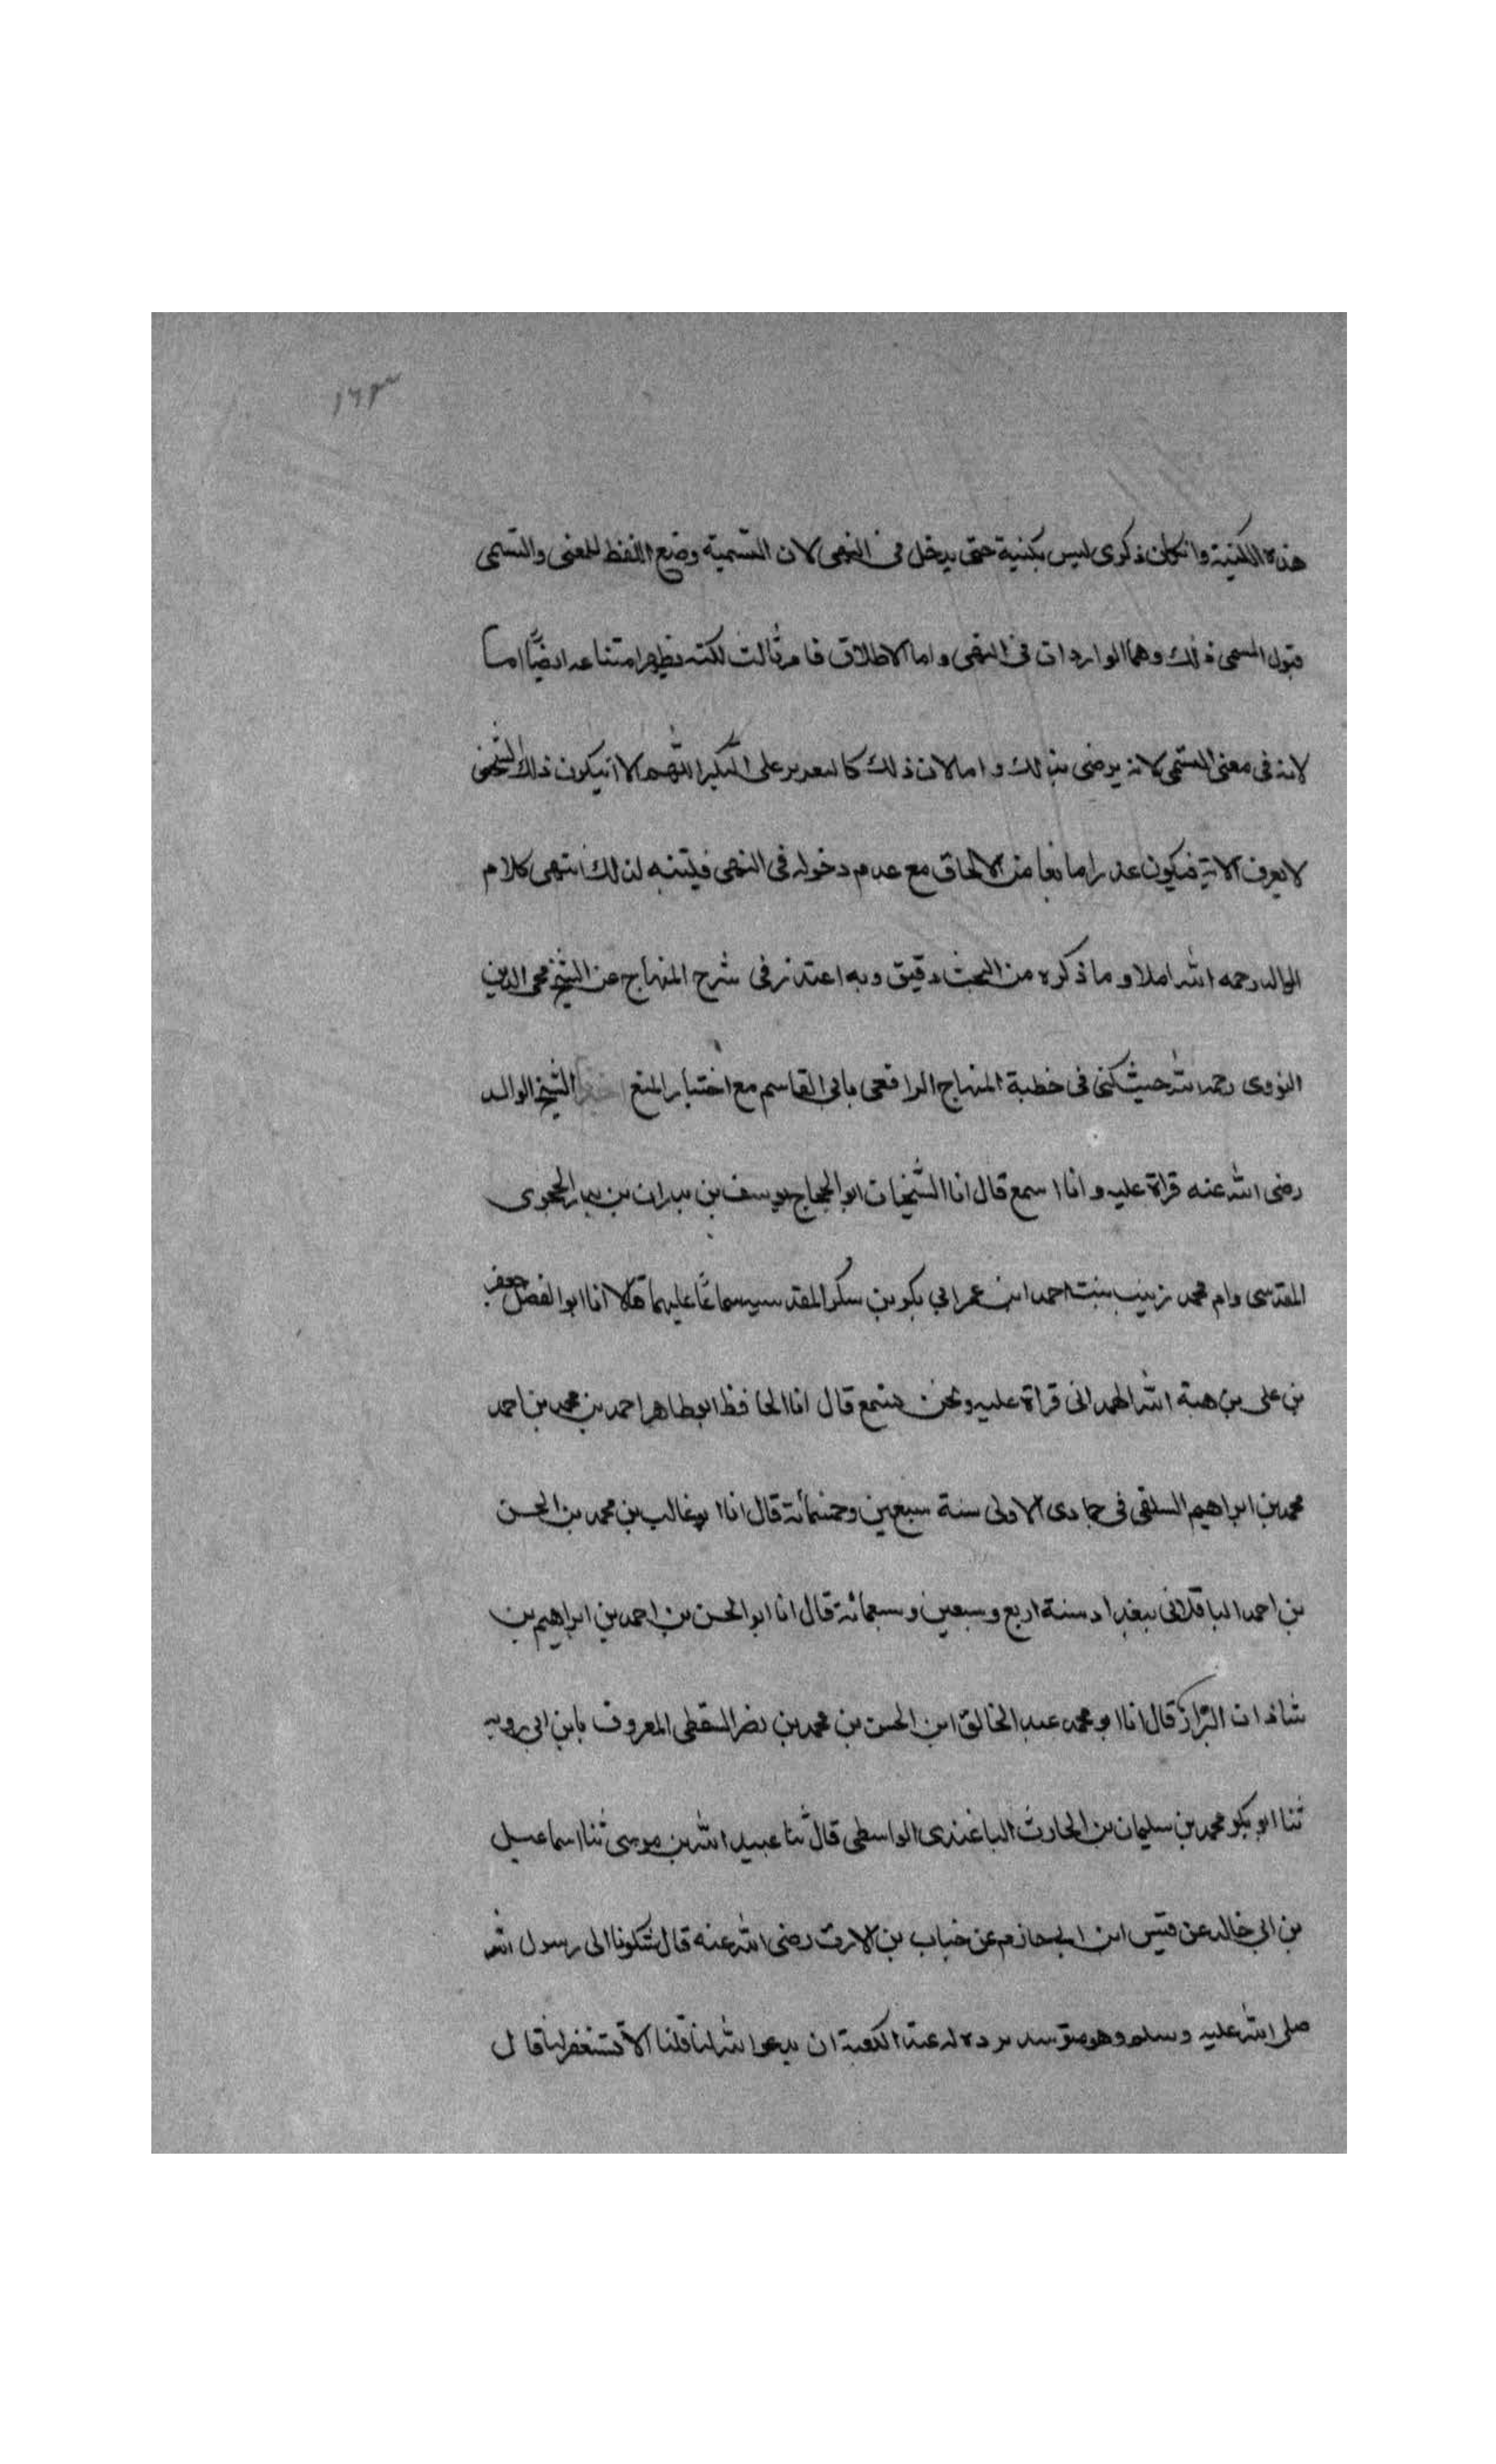 ١٦٣
هذه الكنية وان كان ذكرى ليس بكنية حتى يدخل في النهى لان التسمية وضع اللفظ للمعنى والتسمى
قبول المسمى ذلك وهما الواردان في النهى واما الاطلاق فامر ثالث لكنه يظهر امتناعه ايضًا اما
لانه في معنى التسمى لانه يرضى بذلك واما لان ذلك كالتقرير على المنكر اللهم الا ان يكون ذلك الشخص
لا يعرف الا به فيكون عذرا مانعا من الالحاق مع عدم دخوله في النهى فليتنبه لذلك انتهى كلام
الوالد رحمه الله املا وما ذكره من البحث دقيق وبه اعتذر في شرح المنهاج عن الشيخ محى الدين
النووى رحمه الله حيث كنى في خطبة المنهاج الرافعى بابى القاسم مع اختيار المنع الشيخ الوالد
رضى الله عنه قراة عليه وانا اسمع قال انا الشيخان ابو الحجاج يوسف بن بدران بن الحجوى
المقدسى وام محمد زينب بنت احمد ابن عمر ابي بكر بن سكر المقدسيه سماعًا عليهما قالا انا ابو الفضل جعفر
بن على بن هبة الله الهمدانى قراة عليه ونحن نسمع قال انا الحافظ ابو طاهر احمد بن محمد بن احمد
محمد بن ابراهيم السلفى في جمادى الاولى سنة سبعين وخمسمائة قال انا ابو غالب بن محمد بن الحسن
بن احمد الباقلانى ببغداد سنة اربع وسبعين وسبعمائة قال انا ابو الحسن بن احمد بن ابراهيم بن
شاذان البزاز قال انا ابو محمد عبد الخالق ابن الحسن بن محمد بن نصر السقطى المعروف بابن ابى روبه
ثنا ابو بكر محمد بن سليمان بن الحارث الباغندى الواسطى قال ثنا عبيد الله بن موسى ثنا اسماعيل
بن ابي خالد عن قيس ابن ابي حازم عن خباب بن الارت رضى الله عنه قال شكونا الى رسول الله
صلى الله عليه وسلم وهو متوسد برده له عند الكعبة ان يدعوا الله لنا قلنا الا تستغفر لنا قال